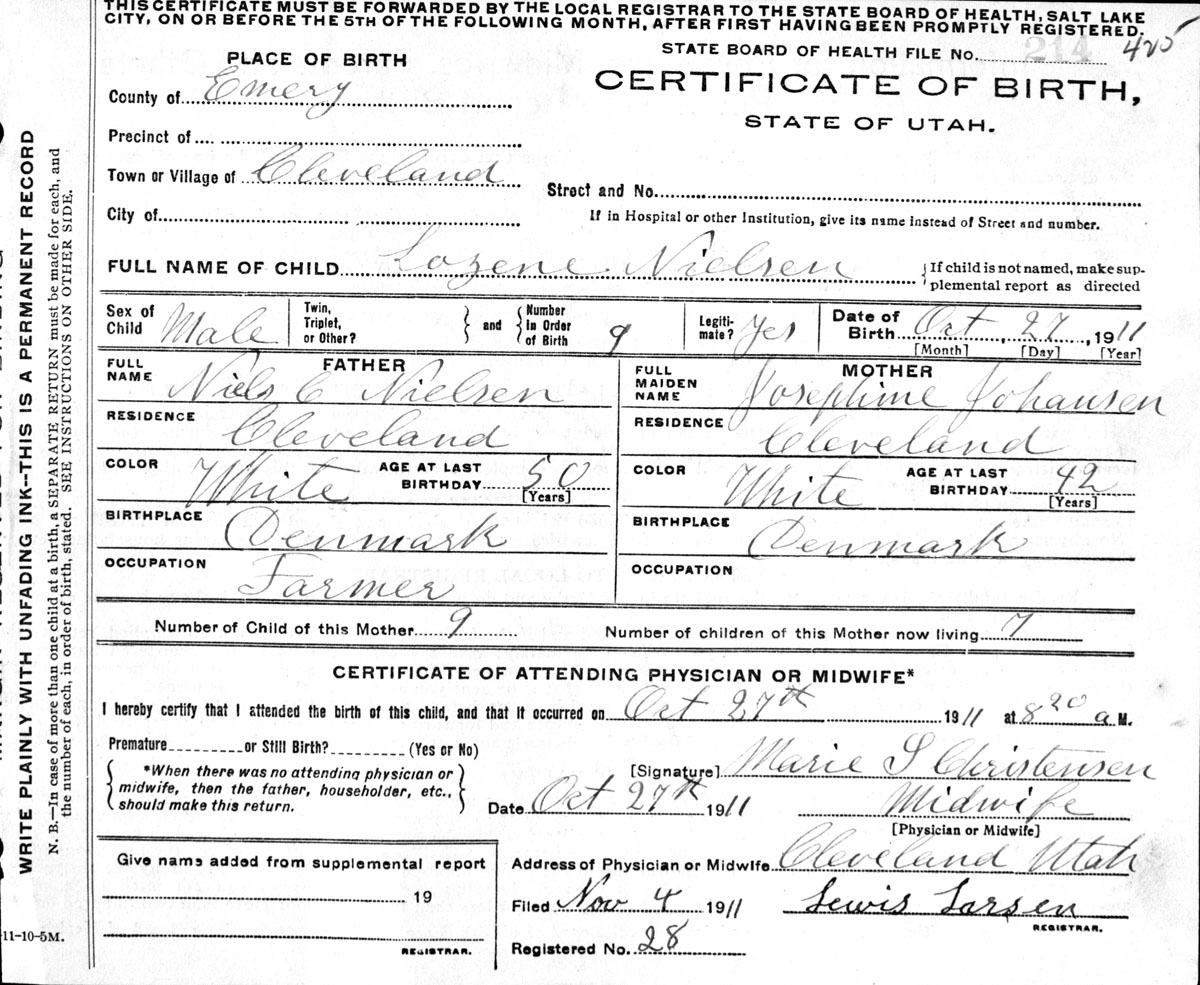 THIS CERTIFICATE MUST BE FORWARDED BY THE LOCAL REGISTRAR TO THE STATE BOARD OF HEALTH, SALT LAKE
CITY, ON OR BEFORE THE 5TH OF THE FOLLOWING MONTH, AFTER FIRST HAVING BEEN PROMPTLY REGISTERED.
STATE BOARD OF HEALTH FILE No. 214 425
PLACE OF BIRTH
CERTIFICATE OF BIRTH,
STATE OF UTAH.
County of Emery
Precinct of
Town or Village of Cleveland
Street and No.
City of
If in Hospital or other Institution, give its name instead of Street and number.
FULL NAME OF CHILD Lozene Nielsen
{If child is not named, make sup-
plemental report as directed
Sex of Child Male
Twin, Triplet, or Other?
and
Number in Order of Birth 9
Legiti-mate? Yes
Date of Birth Oct 27, 1911
[Month] [Day] [Year]
FATHER
FULL NAME Niels C Nielsen
RESIDENCE Cleveland
COLOR White AGE AT LAST BIRTHDAY 50
[Years]
BIRTHPLACE Denmark
OCCUPATION Farmer
MOTHER
FULL MAIDEN NAME Josephine Johansen
RESIDENCE Cleveland
COLOR White AGE AT LAST BIRTHDAY 42
[Years]
BIRTHPLACE Denmark
OCCUPATION
Number of Child of this Mother 9 Number of children of this Mother now living 7
CERTIFICATE OF ATTENDING PHYSICIAN OR MIDWIFE*
I hereby certify that I attended the birth of this child, and that it occurred on Oct 27th 1911 at 8 20 a M.
Premature or Still Birth? (Yes or No)
*When there was no attending physician or
midwife, then the father, householder, etc.,
should make this return.
[Signature] Marie S Christensen
Date Oct 27th 1911 Midwife
[Physician or Midwife]
Give name added from supplemental report
19
REGISTRAR.
Address of Physician or Midwife Cleveland Utah
Filed Nov 4 1911 Lewis Larsen
REGISTRAR.
Registered No. 28
11-10-5M.
WRITE PLAINLY WITH UNFADING INK--THIS IS A PERMANENT RECORD
N. B.—In case of more than one child at a birth, a SEPARATE RETURN must be made for each, and
the number of each, in order of birth, stated. SEE INSTRUCTIONS ON OTHER SIDE.